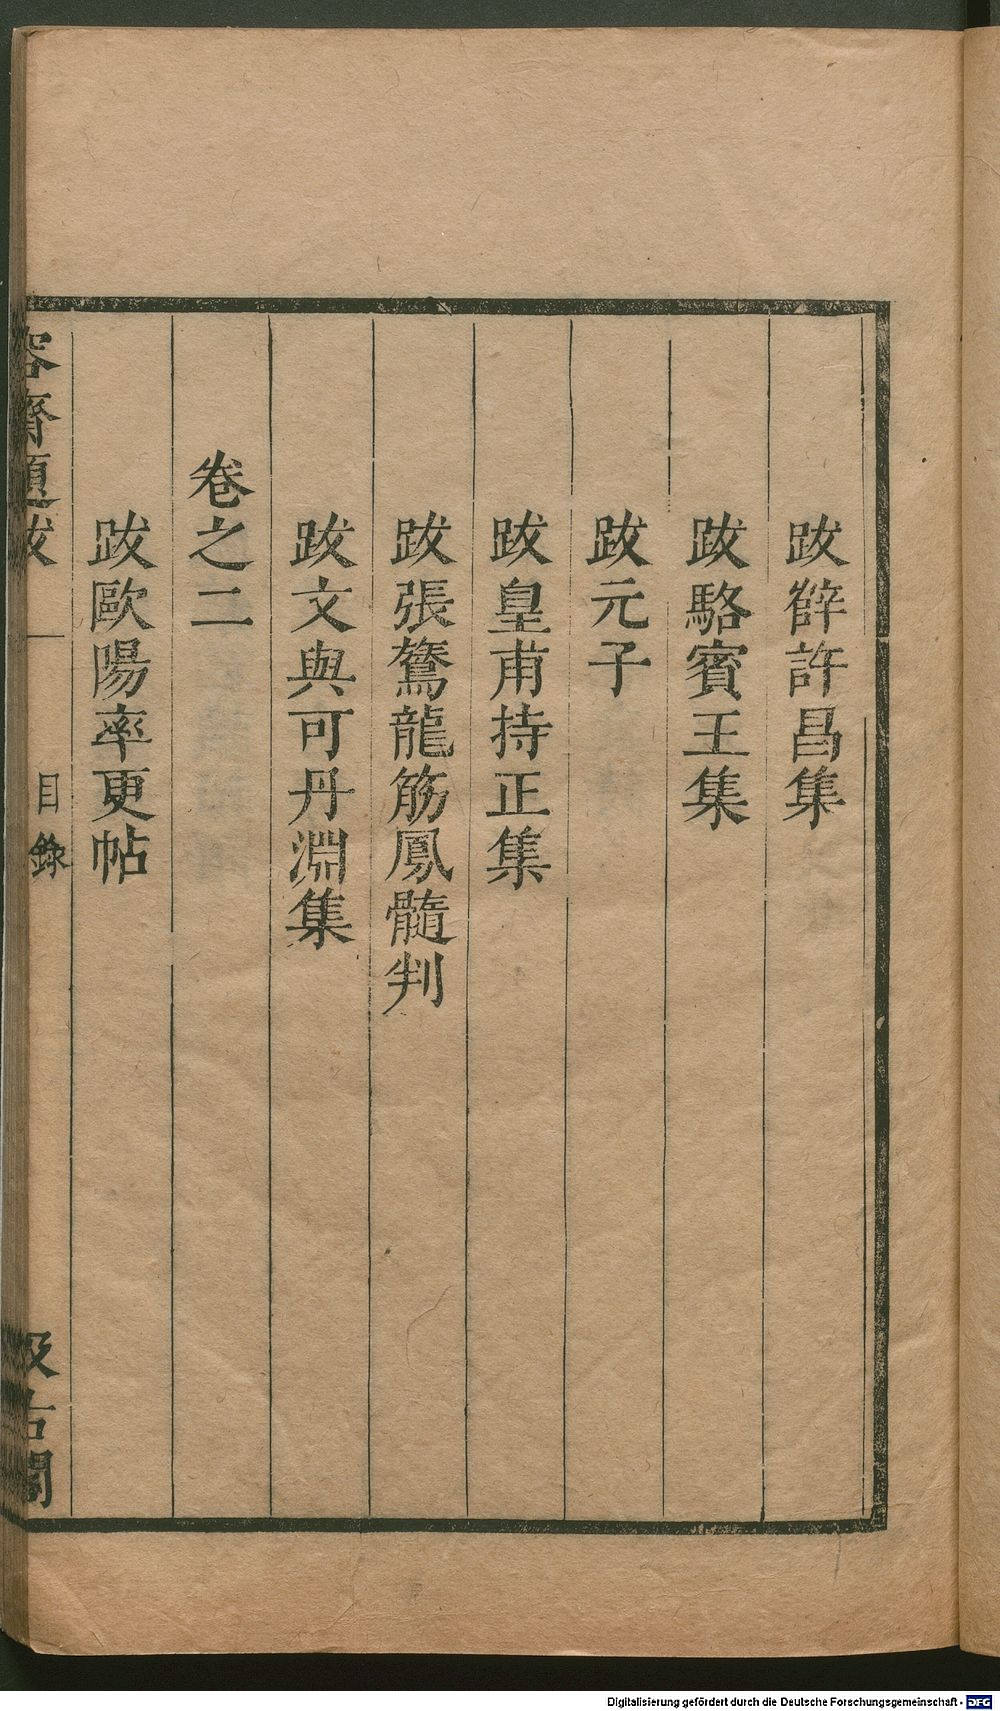 跋薛許昌集
跋駱賓王集
跋元子
跋皇甫持正集
跋張鷟龍筋鳳髓判
跋文與可丹淵集
卷之二
跋歐陽率更帖
容齋題跋 一 目錄 汲古閣
Digitalisierung gefördert durch die Deutsche Forschungsgemeinschaft - DFG